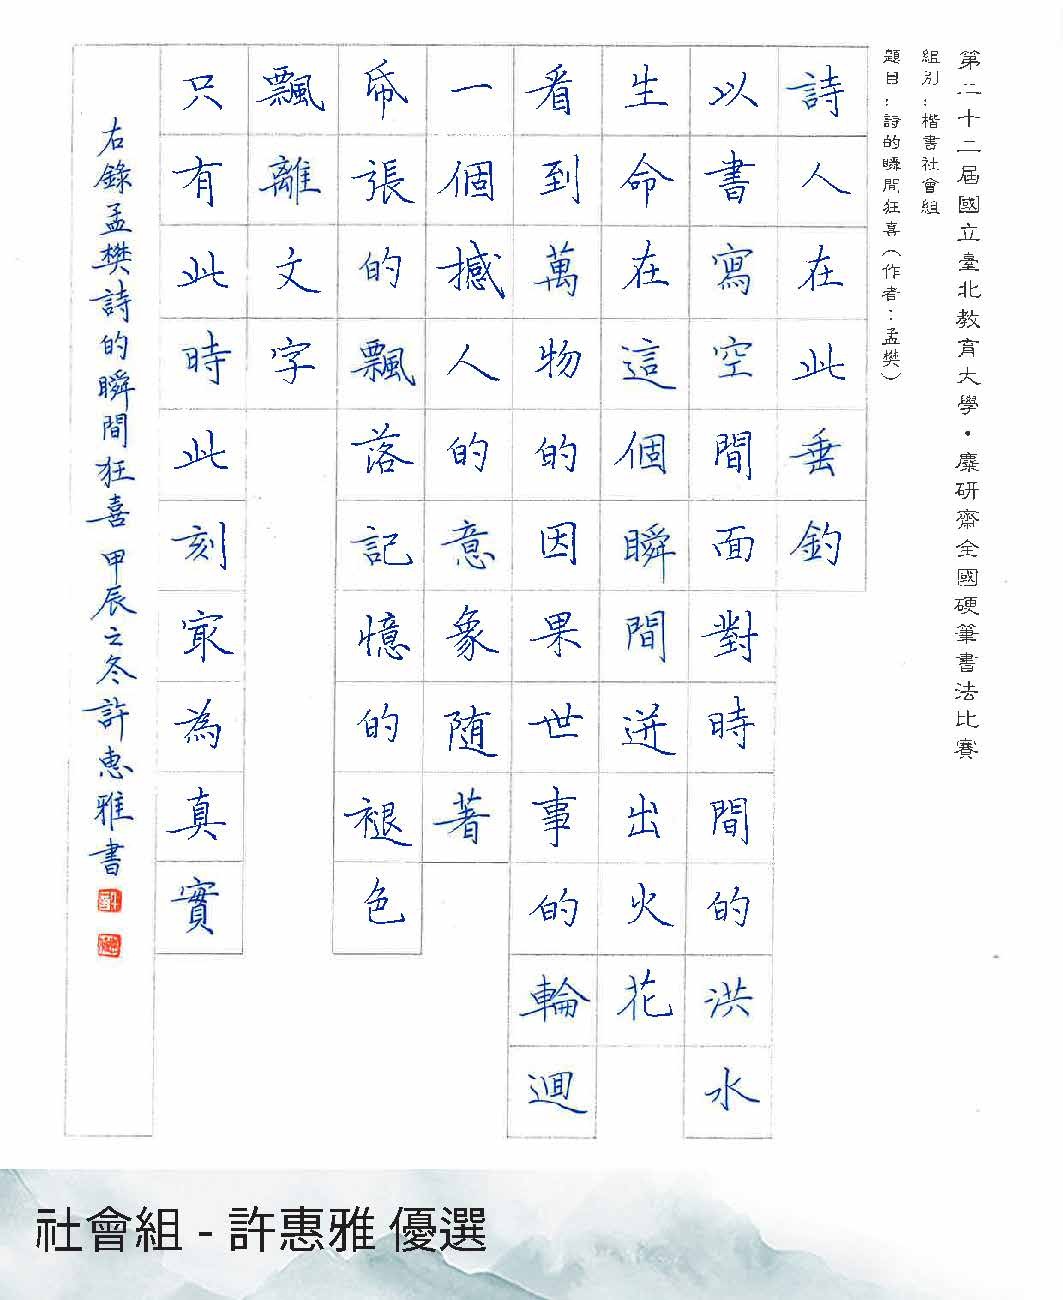 第二十二屆國立臺北教育大學・麋研齋全國硬筆書法比賽
組別：楷書社會組
題目：詩的瞬間狂喜（作者：孟樊）
詩人在此垂釣
以書寫空間面對時間的洪水
生命在這個瞬間迸出火花
看到萬物的因果世事的輪迴
一個撼人的意象隨著
紙張的飄落記憶的褪色
飄離文字
只有此時此刻最為真實
右錄孟樊詩的瞬間狂喜甲辰之冬許惠雅書
社會組 - 許惠雅 優選